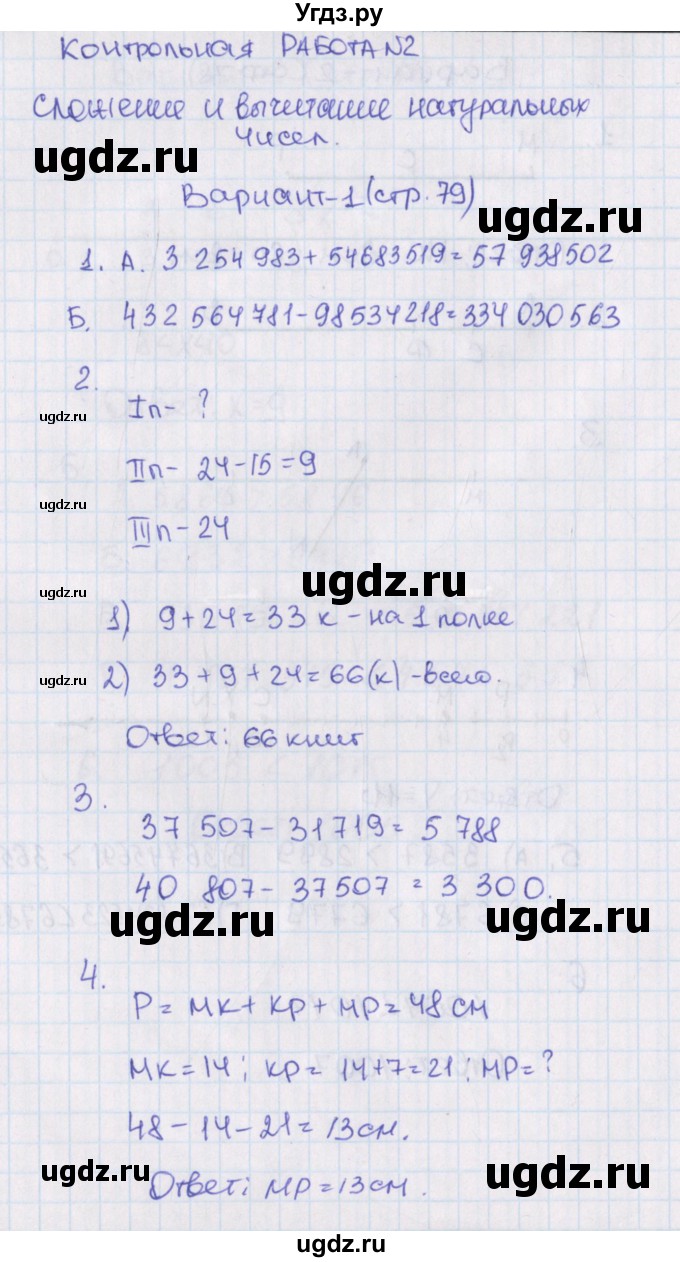 Угдз.ру
Контрольная РАБОТА №2
Сложение и вычитание натуральных
чисел.
ugdz.ru
Вариант-1 (стр. 79)
ugdz.ru
1. А. 3 254 983 + 54683519 = 57 938502
Б. 432 564 781 - 98534218 = 334 030 563
2.
Iп - ?
ugdz.ru
IIп - 24 - 15 = 9
ugdz.ru
IIIп - 24
ugdz.ru
1) 9 + 24 = 33 к - на 1 полке
ugdz.ru
2) 33 + 9 + 24 = 66 (к) - всего.
Ответ: 66 книг
3.
37 507 - 31719 = 5 788
40 807 - 37507 = 3 300.
ugdz.ru ugdz.ru
4.
P = МК + КР + МР = 48 см
МК = 14 ; КР = 14 + 7 = 21 ; МР = ?
48 - 14 - 21 = 13 см.
ugdz.ru ugdz.ru
Ответ: МР = 13 см.
ugdz.ru
ugdz.ru